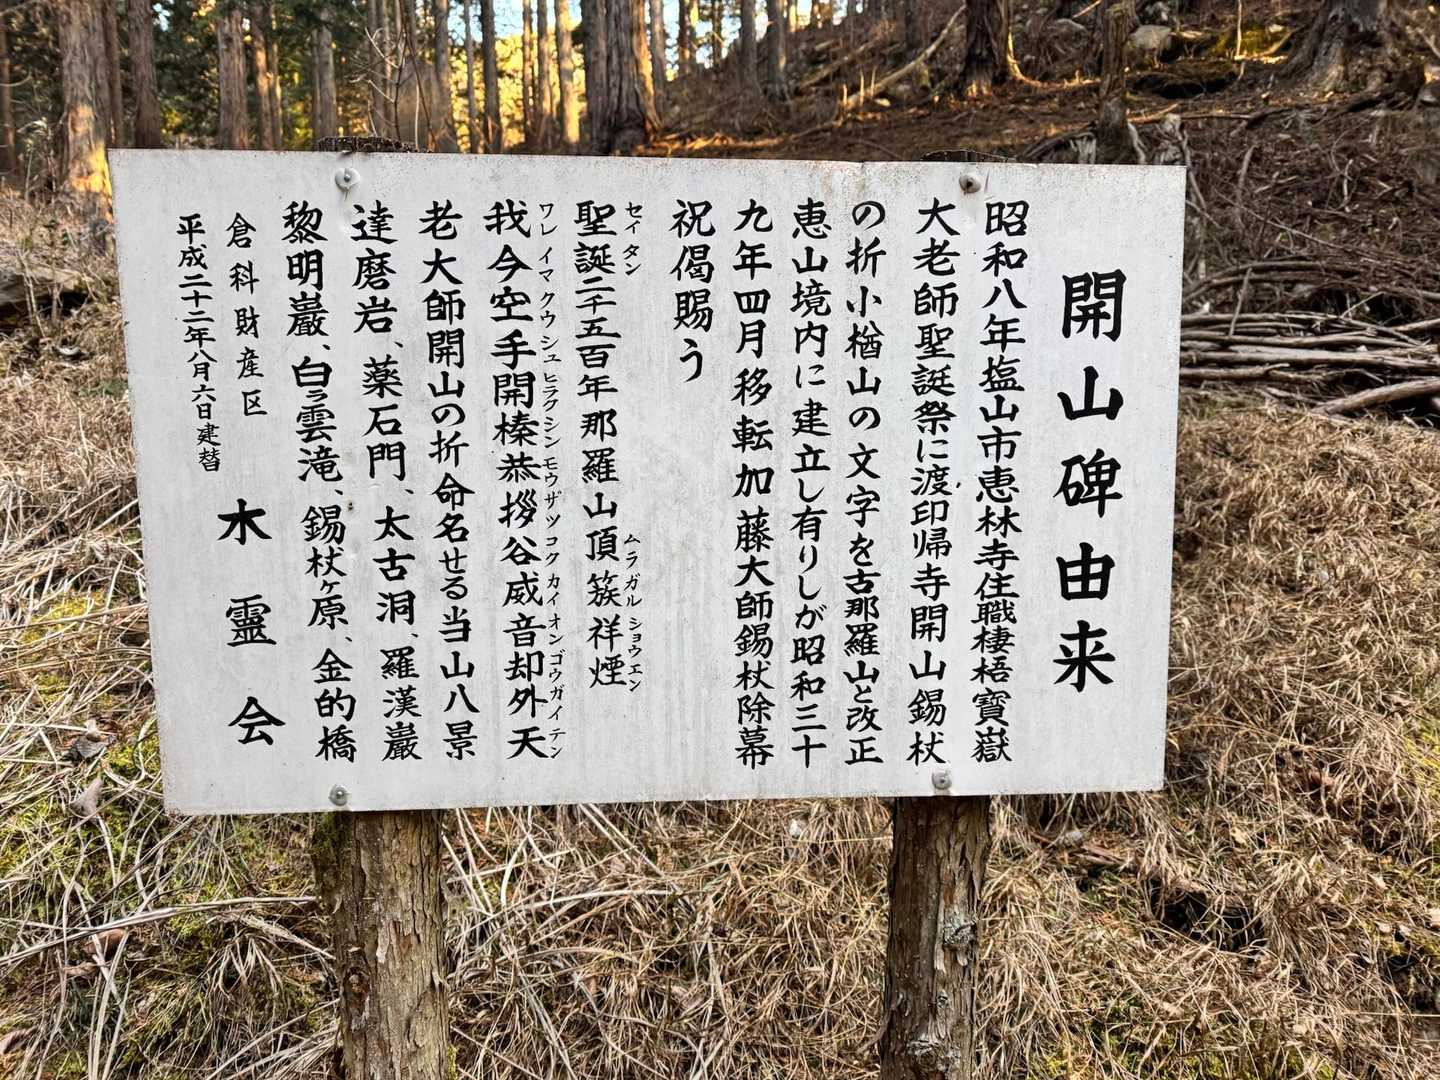 開山碑由来
昭和八年塩山市恵林寺住職棲梧寶嶽
大老師聖誕祭に渡印帰寺開山錫杖
の折小楢山の文字を古那羅山と改正
恵山境内に建立し有りしが昭和三十
九年四月移転加藤大師錫杖除幕
祝偈賜う
聖誕二千五百年那羅山頂簇祥煙
セイタン
ムラガル ショウエン
我今空手開榛恭拶谷威音却外天
ワレ イマ クウ シュ ヒラク シン モウ ザツ コク カイ オン ゴウ ガイ テン
老大師開山の折命名せる当山八景
達磨岩、薬石門、太古洞、羅漢巖
黎明巖、白ラ雲滝、錫杖ヶ原、金的橋
倉科財産区 木霊会
平成二十二年八月六日建替